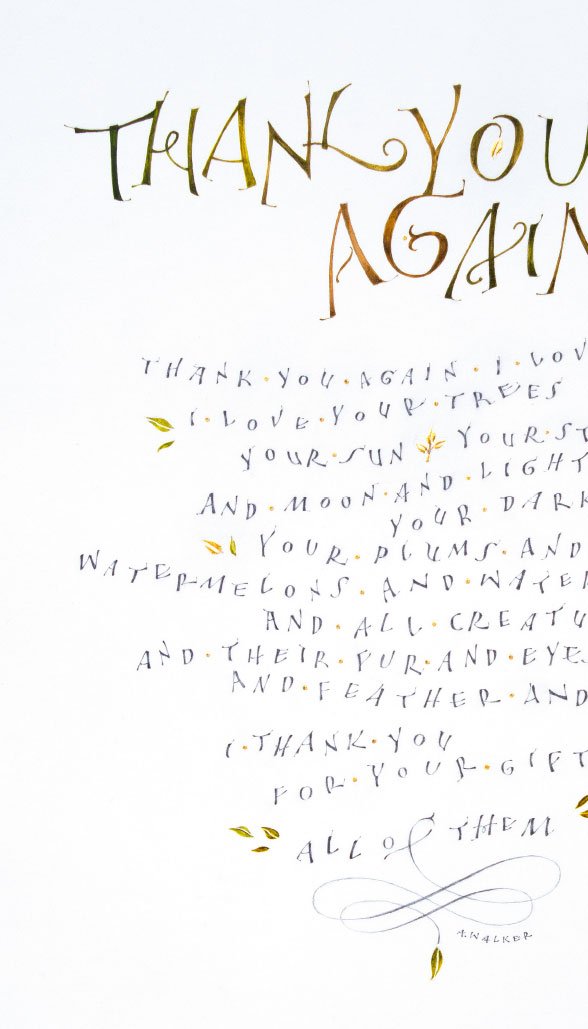 THANK YOU
AGAIN
THANK · YOU · AGAIN · I · LOV
I · LOVE · YOUR · TREES
YOUR · SUN YOUR · ST
AND · MOON · AND · LIGHT
YOUR · DARK
YOUR · PLUMS · AND
WATERMELONS · AND · WATER
AND · ALL · CREATU
AND · THEIR · FUR · AND · EYE
AND · FEATHER · AND
I · THANK · YOU
FOR · YOUR · GIFT
ALL OF THEM
A. WALKER